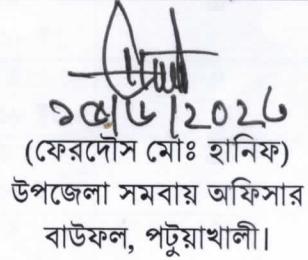 (ফেরদৌস মোঃ হানিফ)
উপজেলা সমবায় অফিসার
বাউফল, পটুয়াখালী।